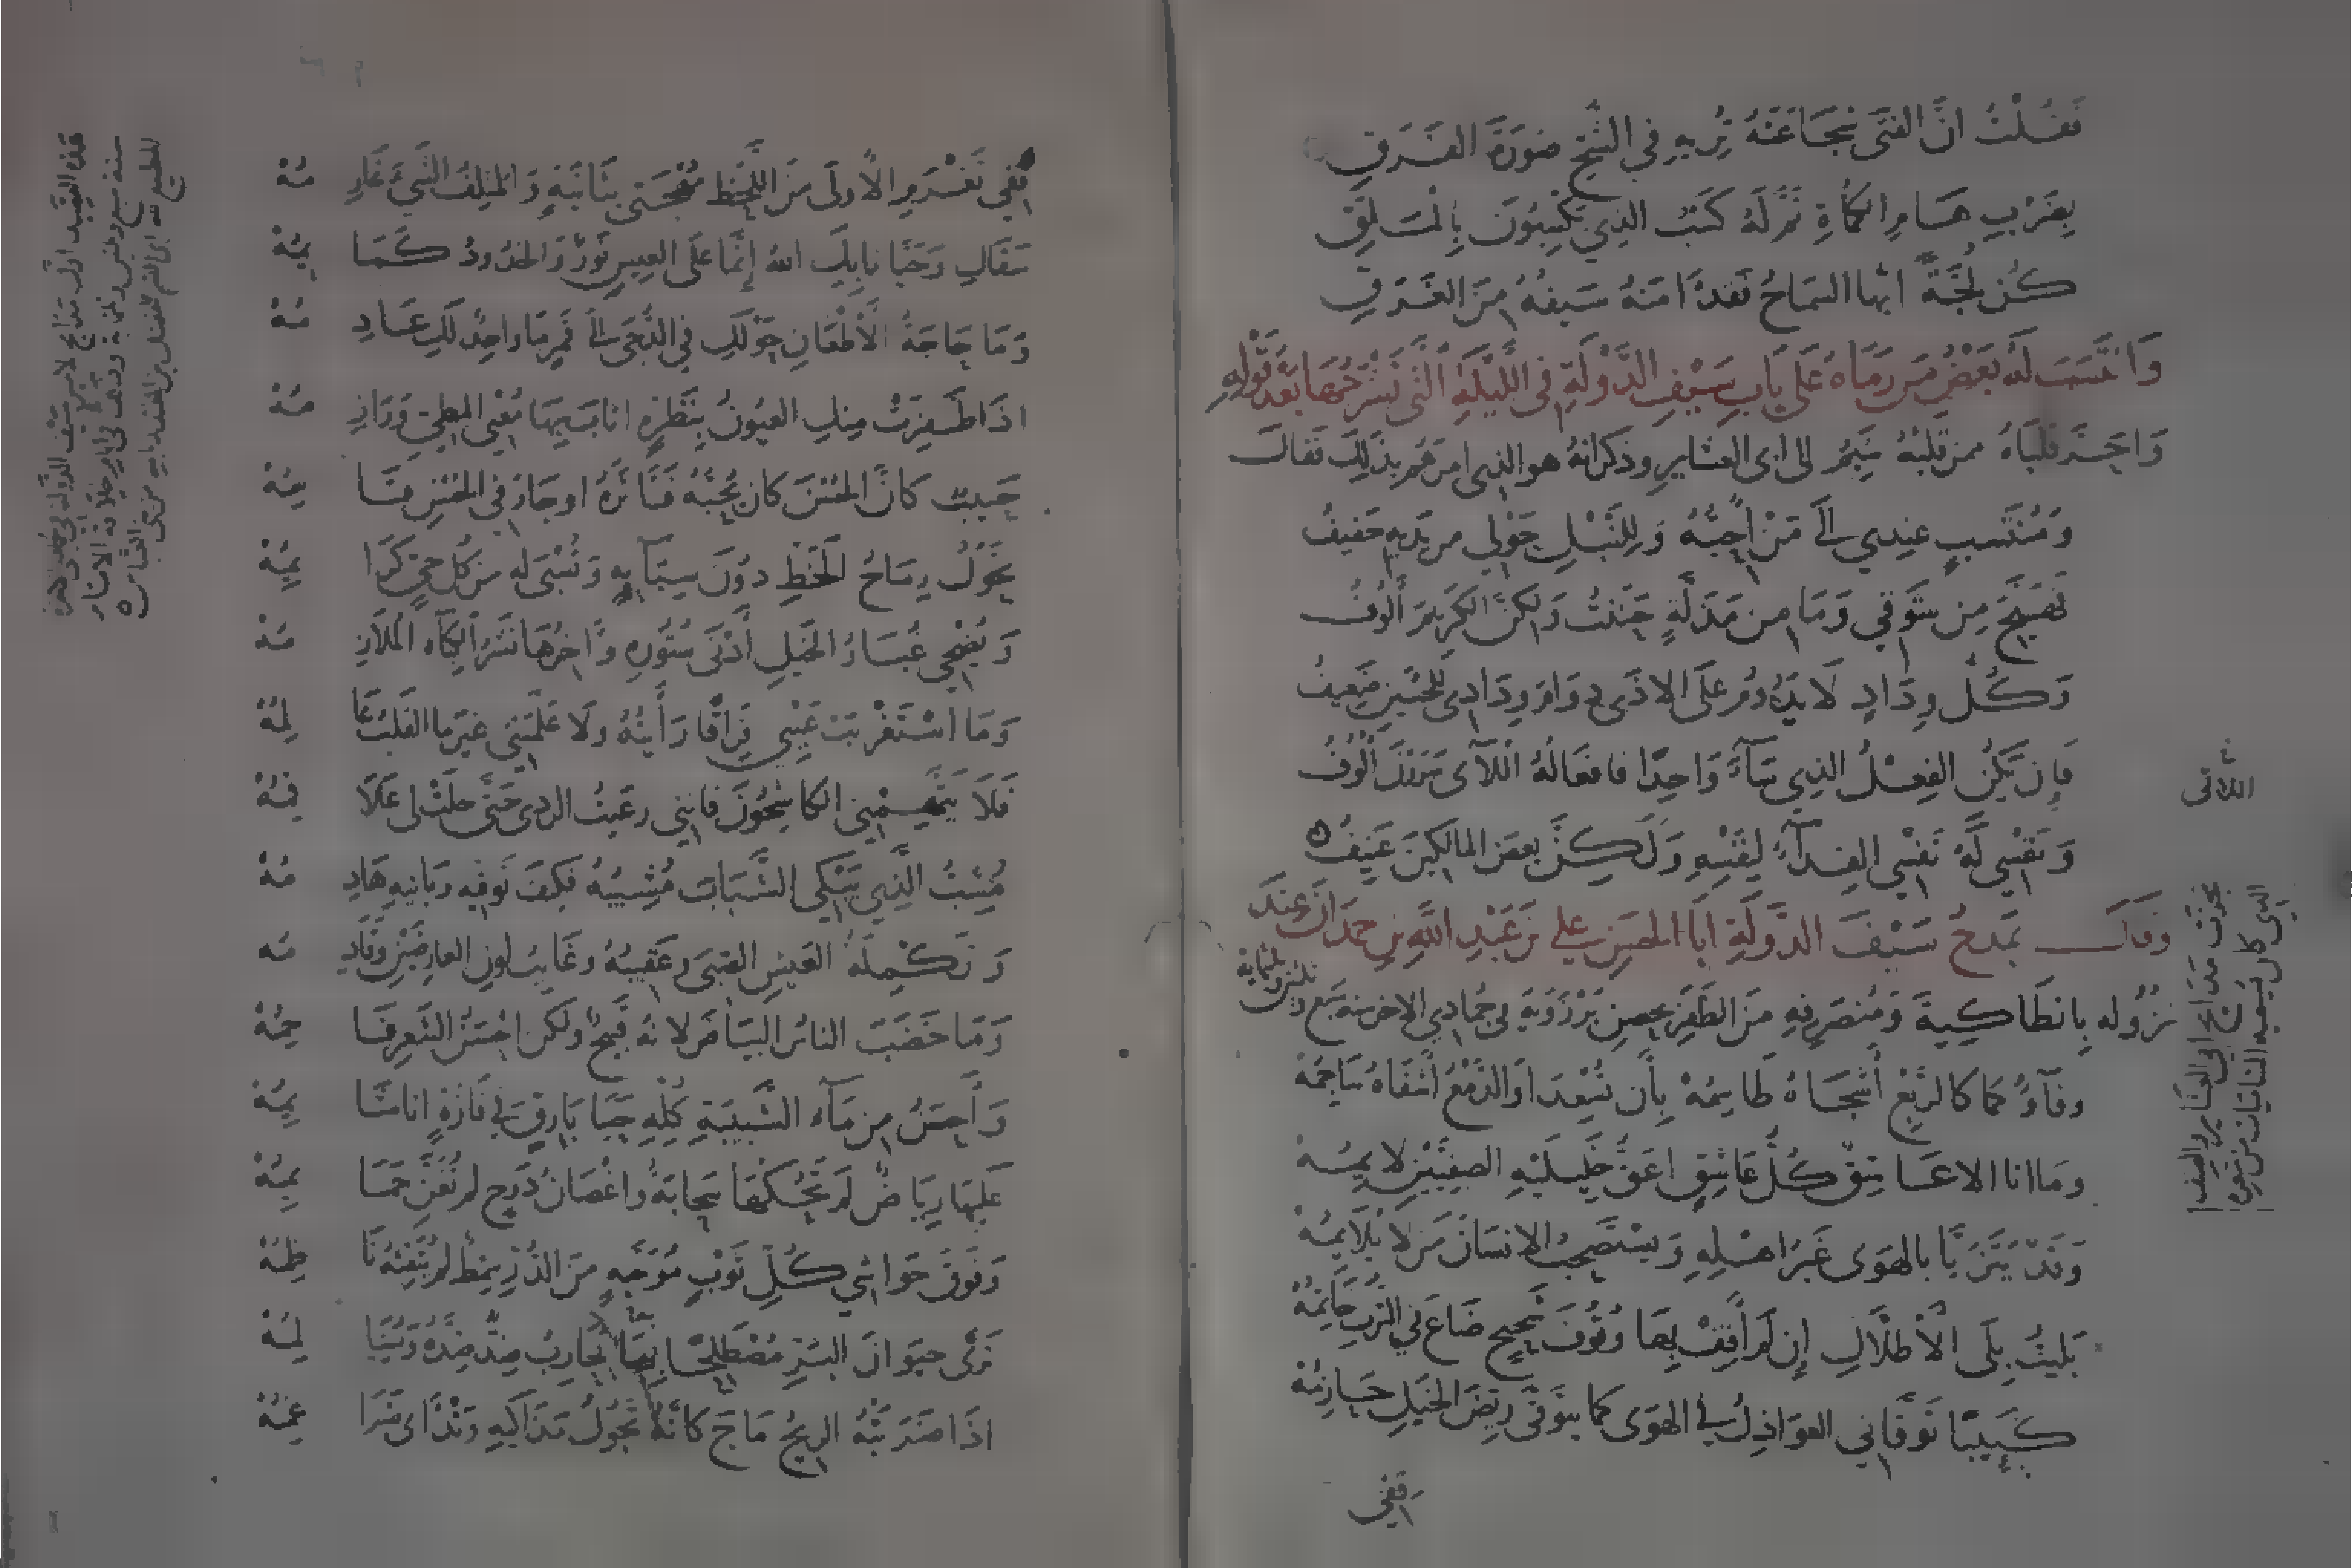 فَقُلْتُ اِنَّ الفَتَى شَجَاعَتُهُ تُرِيهِ فِي الشُّحِّ صُورَةَ الفَرَقِ
بِضَرْبِ هَامِ الكُمَاةِ تَمَّ لَهُ كَسْبُ الذِي يَكْسِبُونَ بِالمَلَقِ
كُنْ لُجَّةً ايُّها السَمَاحُ فَقَدْ آمَنَهُ سَيفُهُ مِنَ الغَرَقِ
وَانْتَسَبَ لَهُ بَعْضُ مَن رَمَاهُ عَلَى بَابِ سَيْفِ الدَّوْلَةِ فِي اللَّيْلَةِ الَّتِي نَشْرَحُهَا بَعْدَ قَوْلِهِ
وَاحَرَّ قلبَاهُ ممن قلبُهُ شَبِمُ الى ابى العشاير وذكر انهُ هو الذي امرهُم بذلِكَ فقالَ
وَمُنْتَسِبٍ عِندِي الَى مَنْ اُحِبُّهُ وَلِلنَّبْلِ حَوْلِي مِن يَدَيهِ حَفِيفُ
فَهَيَّجَ مِن شَوقِي وَمَا مِن مَذَلَّةٍ حَنَنتُ وَلكِنَّ الكَرِيمَ أَلُوفُ
وَكُلُّ وِدَادٍ لَا يَدُومُ عَلَى الاذَى دَوَامَ وِدَادِى لِلحُسَينِ ضَعِيفُ
فَإِن يَكُنِ الفِعْلُ الذِي سَآءَ وَاحِدًا فافعَالُهُ اللَّآئى سَرَرْنَ أُلُوفُ
وَنَفْسِي لَهُ نَفْسِي الفِدَآءُ لِنَفْسِهِ وَلَكِنَّ بَعضَ المالِكِينَ عَنِيفُ
وقالَ يَمدحُ سَيْفَ الدَّوْلَةِ ابَا الحسَنِ عَلي بْنَ عَبْدِ اللَّهِ بنِ حمدَان عِنْدَ
نُزُولهِ بِانطَاكِيةَ وَمُنصَرَفِهِ مِنَ الظَفَرِ بحِصنِ بَرْزَوَيَةَ في جُمَادى الاخرِ سنه سَبعٍ وثلثين وثلثمايه
وفآؤُكُما كالرَّبْعِ أَشْجَاهُ طَاسِمُهْ بِأَن تُسْعِدَا وَالدَّمْعُ أَشْفَاهُ سَاجِمُهْ
وَمَا انا الا عَاشِقٌ كُلُّ عَاشِقٍ اعَقُّ خَلِيلَيْهِ الصفِيَّيْنِ لَايِمُهْ
وَقَدْ يَتَزَيَّا بالهَوَى غَيرُ اهْلِهِ وَيَسْتَصْحِبُ الانسَانُ مَن لا يُلَايِمُهْ
بَلِيتُ بِلَى الأَطْلَالِ إِن لَم أَقِفْ بِهَا وُقُوفَ شَحِيحٍ ضَاعَ فِي التُّرْبِ خَاتِمُهْ
كَئِيبًا تَوَقَّانِي العَوَاذِلُ فِي الهَوَى كَمَا يَتَوقَّى رَيِّضَ الخَيلِ حَازِمُهْ
قِفي
اللائى
قِفِي تَغْرَمِ الأُولَى مِنَ اللَّحْظِ مُهْجَتِي بِثَانِيَةٍ وَالمُتلِفُ الشَّيْءَ غَارِمُهْ
سَقَاكِ وَحَيَّانَا بِكِ اللهُ إِنَّمَا عَلَى العِيسِ نَورٌ وَالخُدُورُ كَمَايِمُهْ
وَمَا حَاجَةُ الأَظْعَانِ حَوْلَكِ فِي الدُّجَى الَى قَمَرٍ مَا وَاجِدٌ لَكِ عَادِمُهْ
اذَا ظَفِرَتْ مِنكِ العُيُونُ بِنَظْرَةٍ اثابَ بِهَا مُعْيِي المطِيِّ وَرَازِمُهْ
حَبِيبٌ كَانَّ الحُسْنَ كانَ يُحِبُّهُ فَآثَرَهُ اوجَارَ فِي الحُسْنِ قَاسِمُهْ
تَحُولُ رِمَاحُ الخَطِّ دُونَ سِبَآيِهِ وَتُسْبَى لَه مِن كُلِّ حَيٍّ كَرَايِمُهْ
وَيُضْحِي غُبَارُ الخَيلِ أَدْنَى سُتُورِهِ وَآخِرُهَا نَشْرُ الكِبَآءِ المُلَازِمُهْ
وَمَا اسْتَغْرَبَتْ عَيْنِي فِرَاقًا رَأَيتُهُ ولَا عَلَّمَتْنِي غَيرَ مَا القَلبُ عَالِمُهْ
فَلَا يَتَّهِمْنِي الكاشِحُونَ فاننِي رعَيتُ الردَى حَتَّى حلَتْ لى عَلَاقِمُهْ
مُشِبُّ الَّذِي يَبْكِي الشَّبَابَ مُشِيبُهُ فكيفَ تَوقِّيهِ وَبَانِيهِ هَادِمُهْ
وَتَكْمِلَةُ العَيشِ الصِّبَى وَعَقِيبُهُ وغَايِبُ لَونِ العارِضَيْنِ وقَادِمُهْ
وَمَا خَضَبَ الناسُ البَيَاضَ لِانَّهُ قَبِيحٌ ولَكن احْسَنُ الشَّعرِ فَاحِمُهْ
وَأَحسَنُ مِن مَآءِ الشَّبِيبَةِ كُلِّهِ حَيَا بَارِقٍ فِي فَازَةٍ انا شَايِمُهْ
عَلَيهَا رِيَاضٌ لَم تَحُكْهَا سَحابَةٌ واغْصَانُ دَوحٍ لم تُغَنِّ حَمَايِمُهْ
وَفَوقَ حَوَاشِي كُلِّ ثَوْبٍ مُوَجَّهٍ مِنَ الدُّرِّ سِمْطٌ لم يُثَقِّبْهُ نَاظِمُهْ
تَرَى حيوَانَ البَرِّ مُصْطَلِحًا بِهَا يُحَارِبُ ضِدٌّ ضِدَّهُ وَيُسَالِمُهْ
اذَا ضَرَبَتْهُ الرِيحُ مَاجَ كانَّهُ تَجُولُ مَذَاكِيهِ وَتَدْأَى ضَرَاغِمُهْ